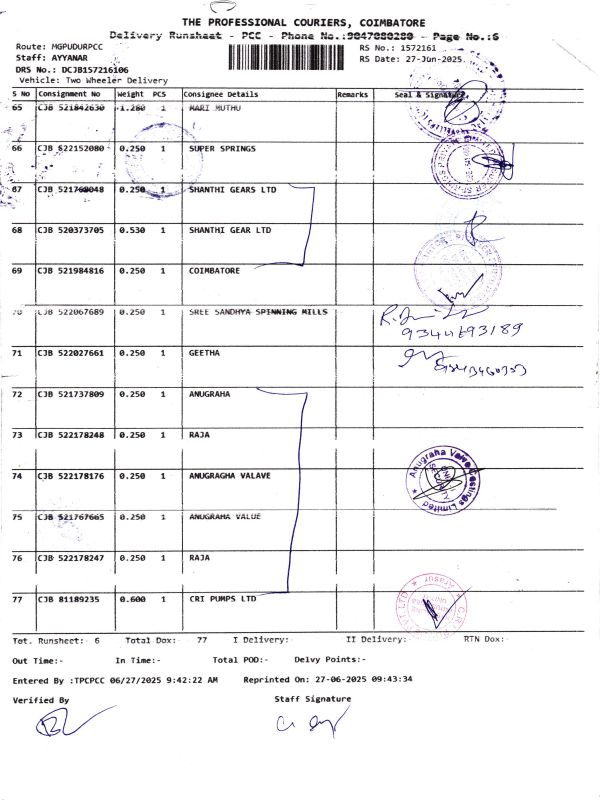 THE PROFESSIONAL COURIERS, COIMBATORE
Delivery Runsheet - PCC - Phone No.:9047080280 - Page No.:6
Route: MGPUDURPCC RS No.: 1572161
Staff: AYYANAR RS Date: 27-Jun-2025
DRS No.: DCJB157216106
Vehicle: Two Wheeler Delivery
S No Consignment No Weight PCS Consignee Details Remarks Seal & Signature
65 CJB 521842630 1.280 1 MARI MUTHU
66 CJB 522152080 0.250 1 SUPER SPRINGS
67 CJB 521768048 0.250 1 SHANTHI GEARS LTD
68 CJB 520373705 0.530 1 SHANTHI GEAR LTD
69 CJB 521984816 0.250 1 COIMBATORE
70 CJB 522067689 0.250 1 SREE SANDHYA SPINNING MILLS
9344693189
71 CJB 522027661 0.250 1 GEETHA
72 CJB 521737809 0.250 1 ANUGRAHA
73 CJB 522178248 0.250 1 RAJA
74 CJB 522178176 0.250 1 ANUGRAGHA VALAVE
Anugraha Valve Castings Limited
75 CJB 521767665 0.250 1 ANUGRAHA VALUE
76 CJB 522178247 0.250 1 RAJA
77 CJB 81189235 0.600 1 CRI PUMPS LTD
Tot. Runsheet: 6 Total Dox: 77 I Delivery: II Delivery: RTN Dox:
Out Time:- In Time:- Total POD:- Delvy Points:-
Entered By :TPCPCC 06/27/2025 9:42:22 AM Reprinted On: 27-06-2025 09:43:34
Verified By Staff Signature